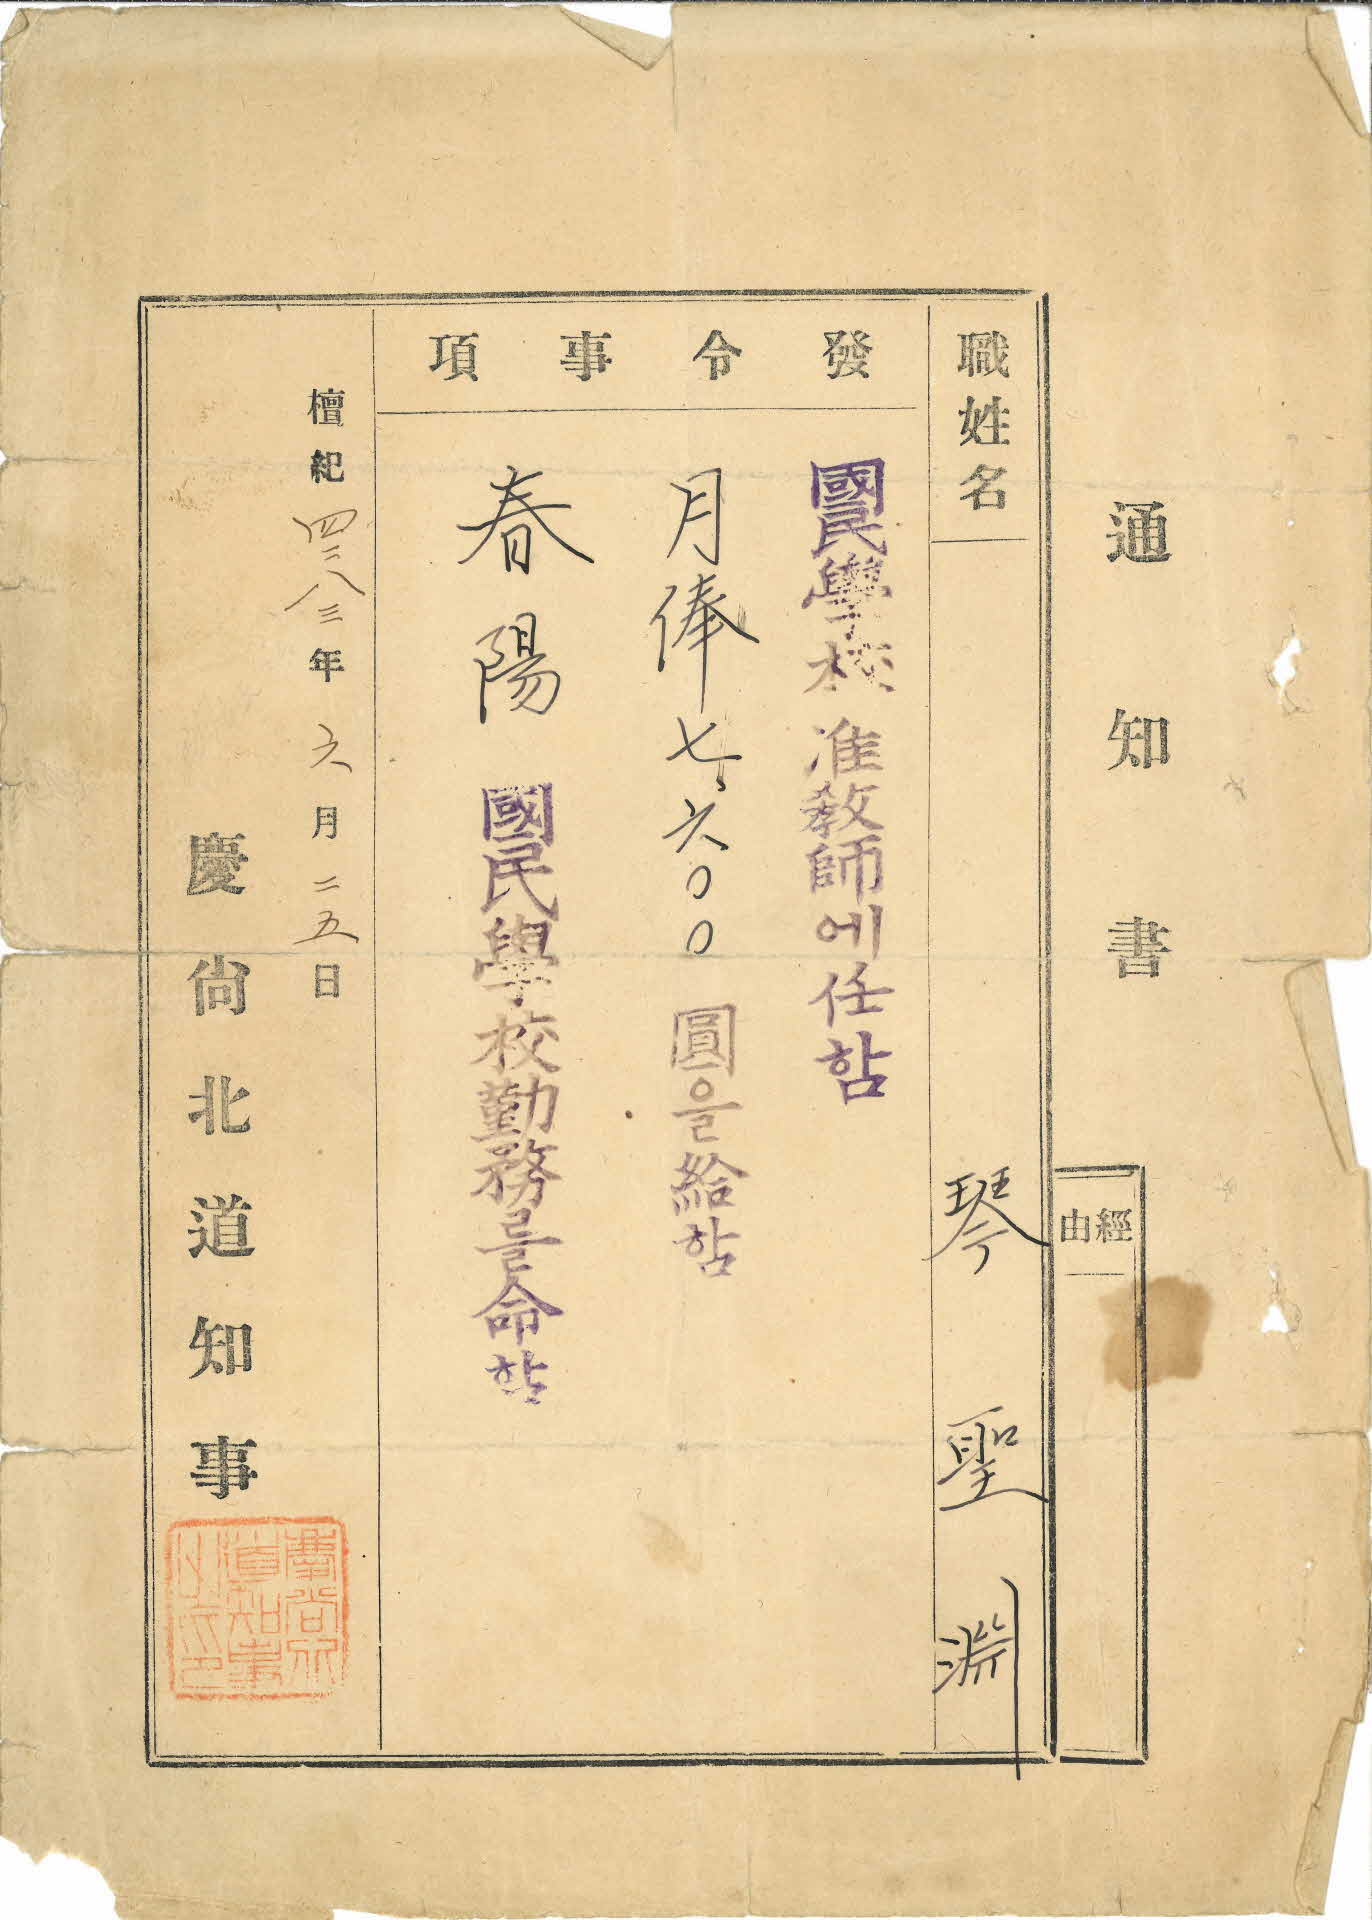 通知書
經由
職姓名
琴聖淵
發令事項
國民學校准敎師에任함
月俸七、六〇〇圓을給함
春陽國民學校勤務를命함
檀紀四二八三年六月二五日
慶尙北道知事